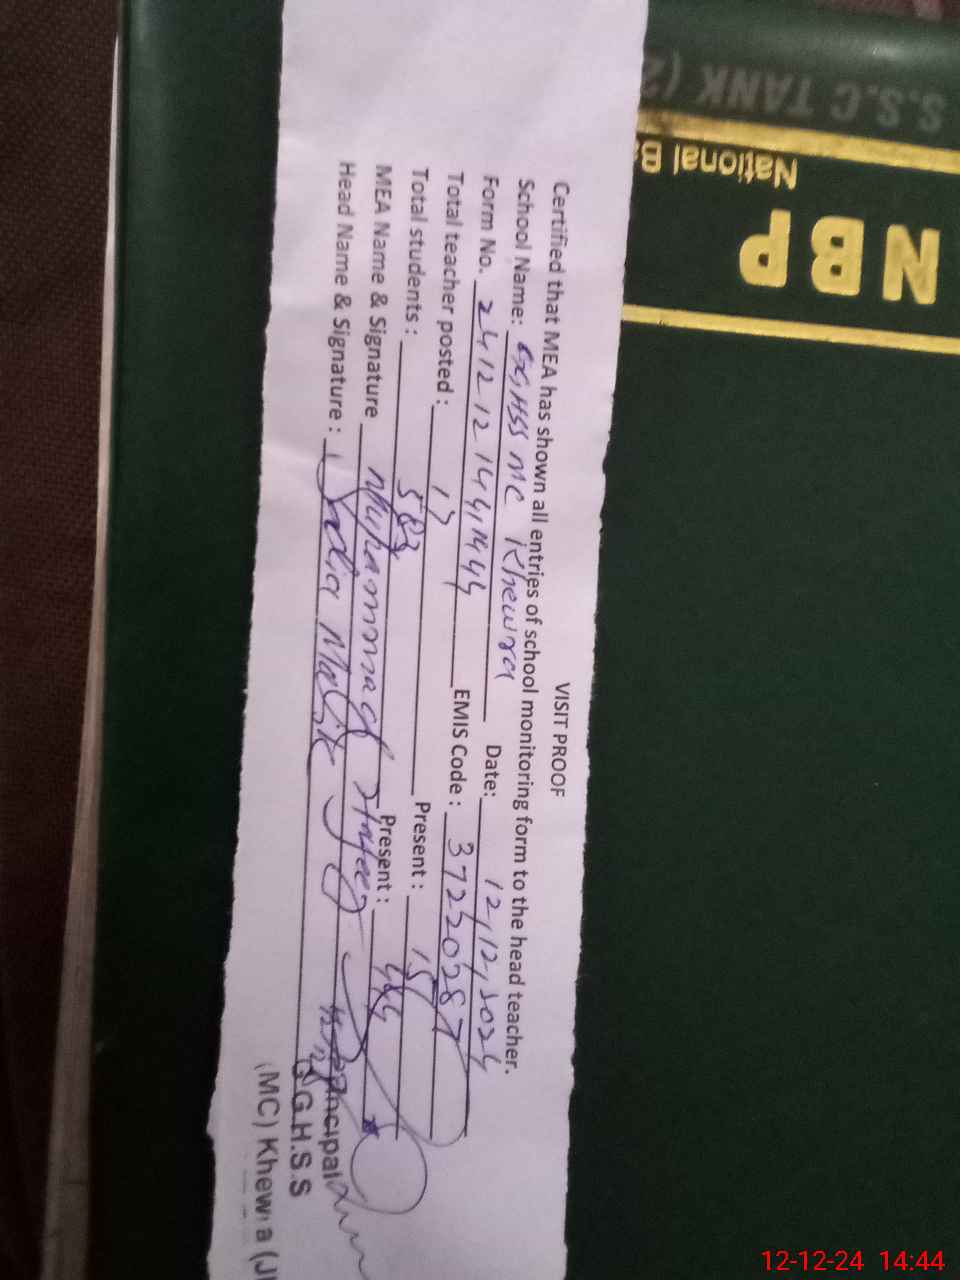 VISIT PROOF
Certified that MEA has shown all entries of school monitoring form to the head teacher.
School Name: GGHSS MC Khewra Date: 12,12,2024
Form No. 24121214441444 EMIS Code: 37220287
Total teacher posted: 17 Present: 15
Total students: 583 Present: 484
MEA Name & Signature Muhammad
Head Name & Signature: Sadia Malik
Principal
G.G.H.S.S
(MC) Khewra (J
NBP
National B
S.S.C TANK (2
12-12-24 14:44